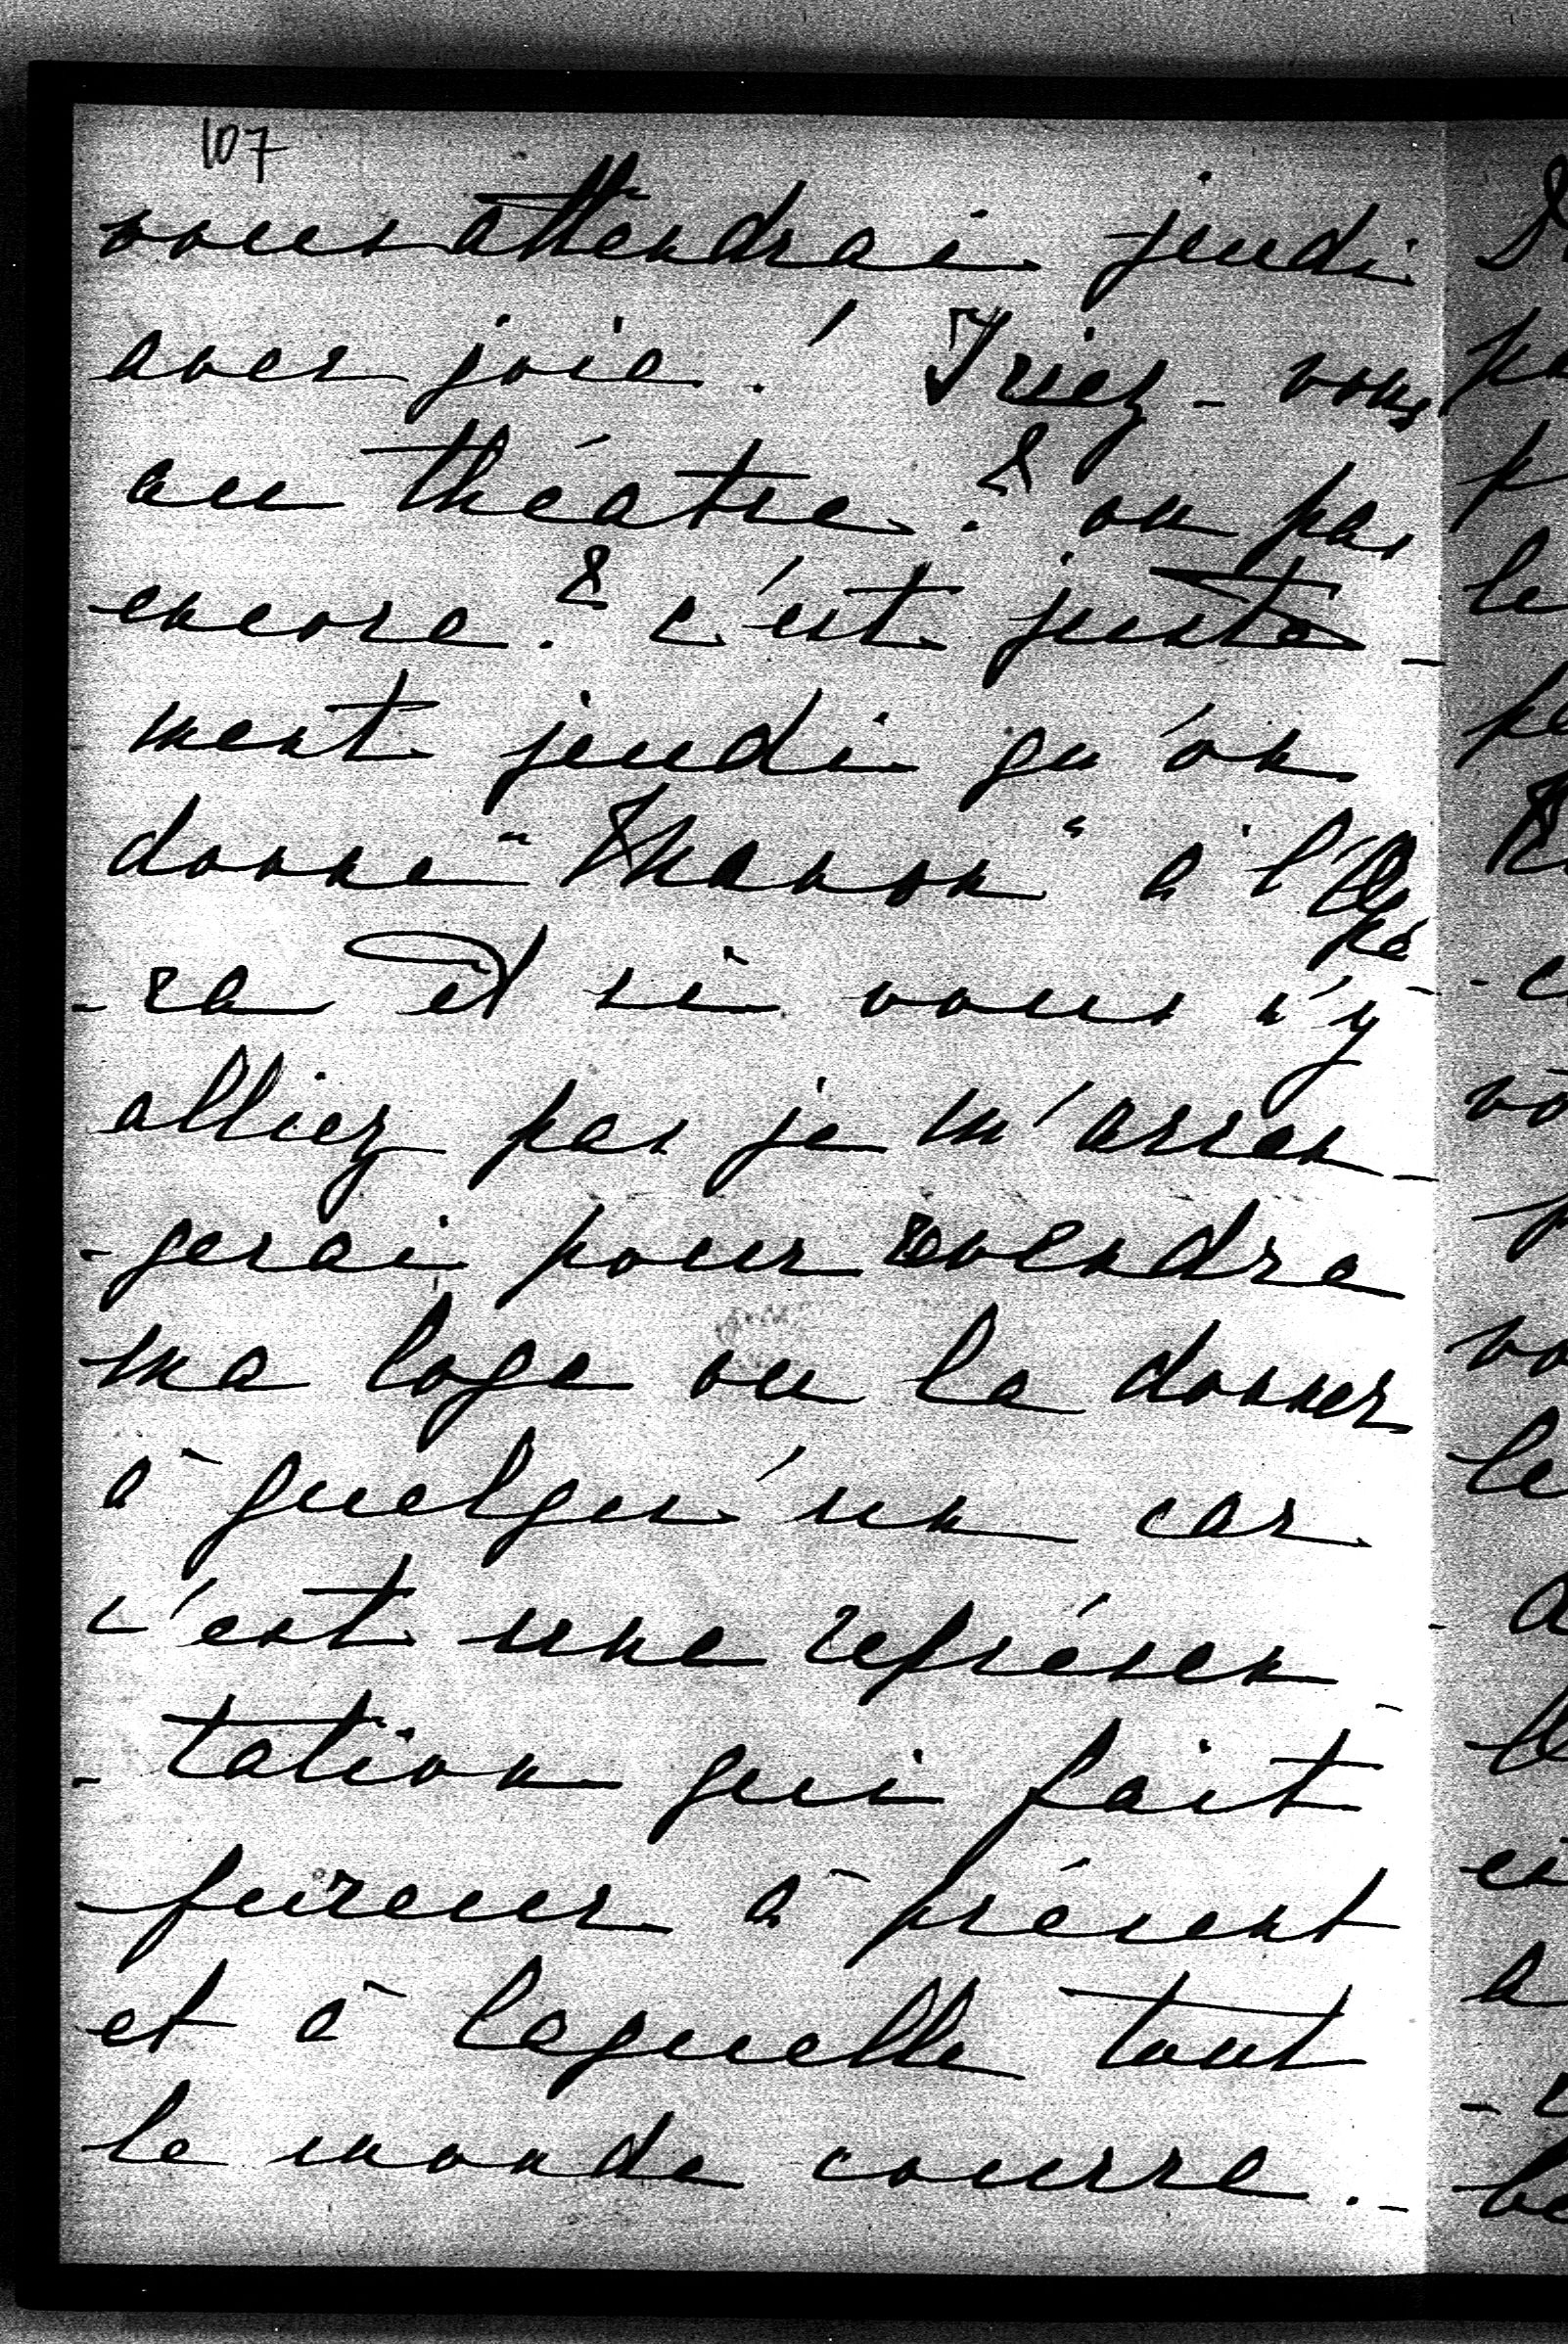 107
vous attendrai jeudi
avec joie! Iriez-vous
au théâtre? ou pas
encore? c'est juste-
ment jeudi qu'on
donne "Manon" à l'Opé
-ra et si vous n'y
alliez pas je m'arran-
-gerai pour revendre
ma loge ou la donner
à quelqu'un car
c'est une représen-
-tation qui fait
fureur à présent
et à laquelle tout
le monde courre.-